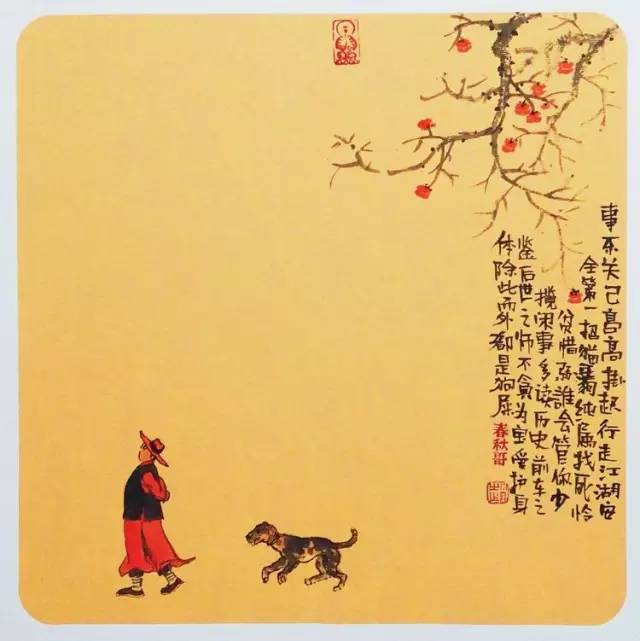 事不关己高高掛起行走江湖安
全第一招纯属找死怜
贫惜弱誰会管你少
攬闲事多读历史前车之
鑒后世之师不貪为宝爱护身
体除此而外都是狗屎
春秋哥